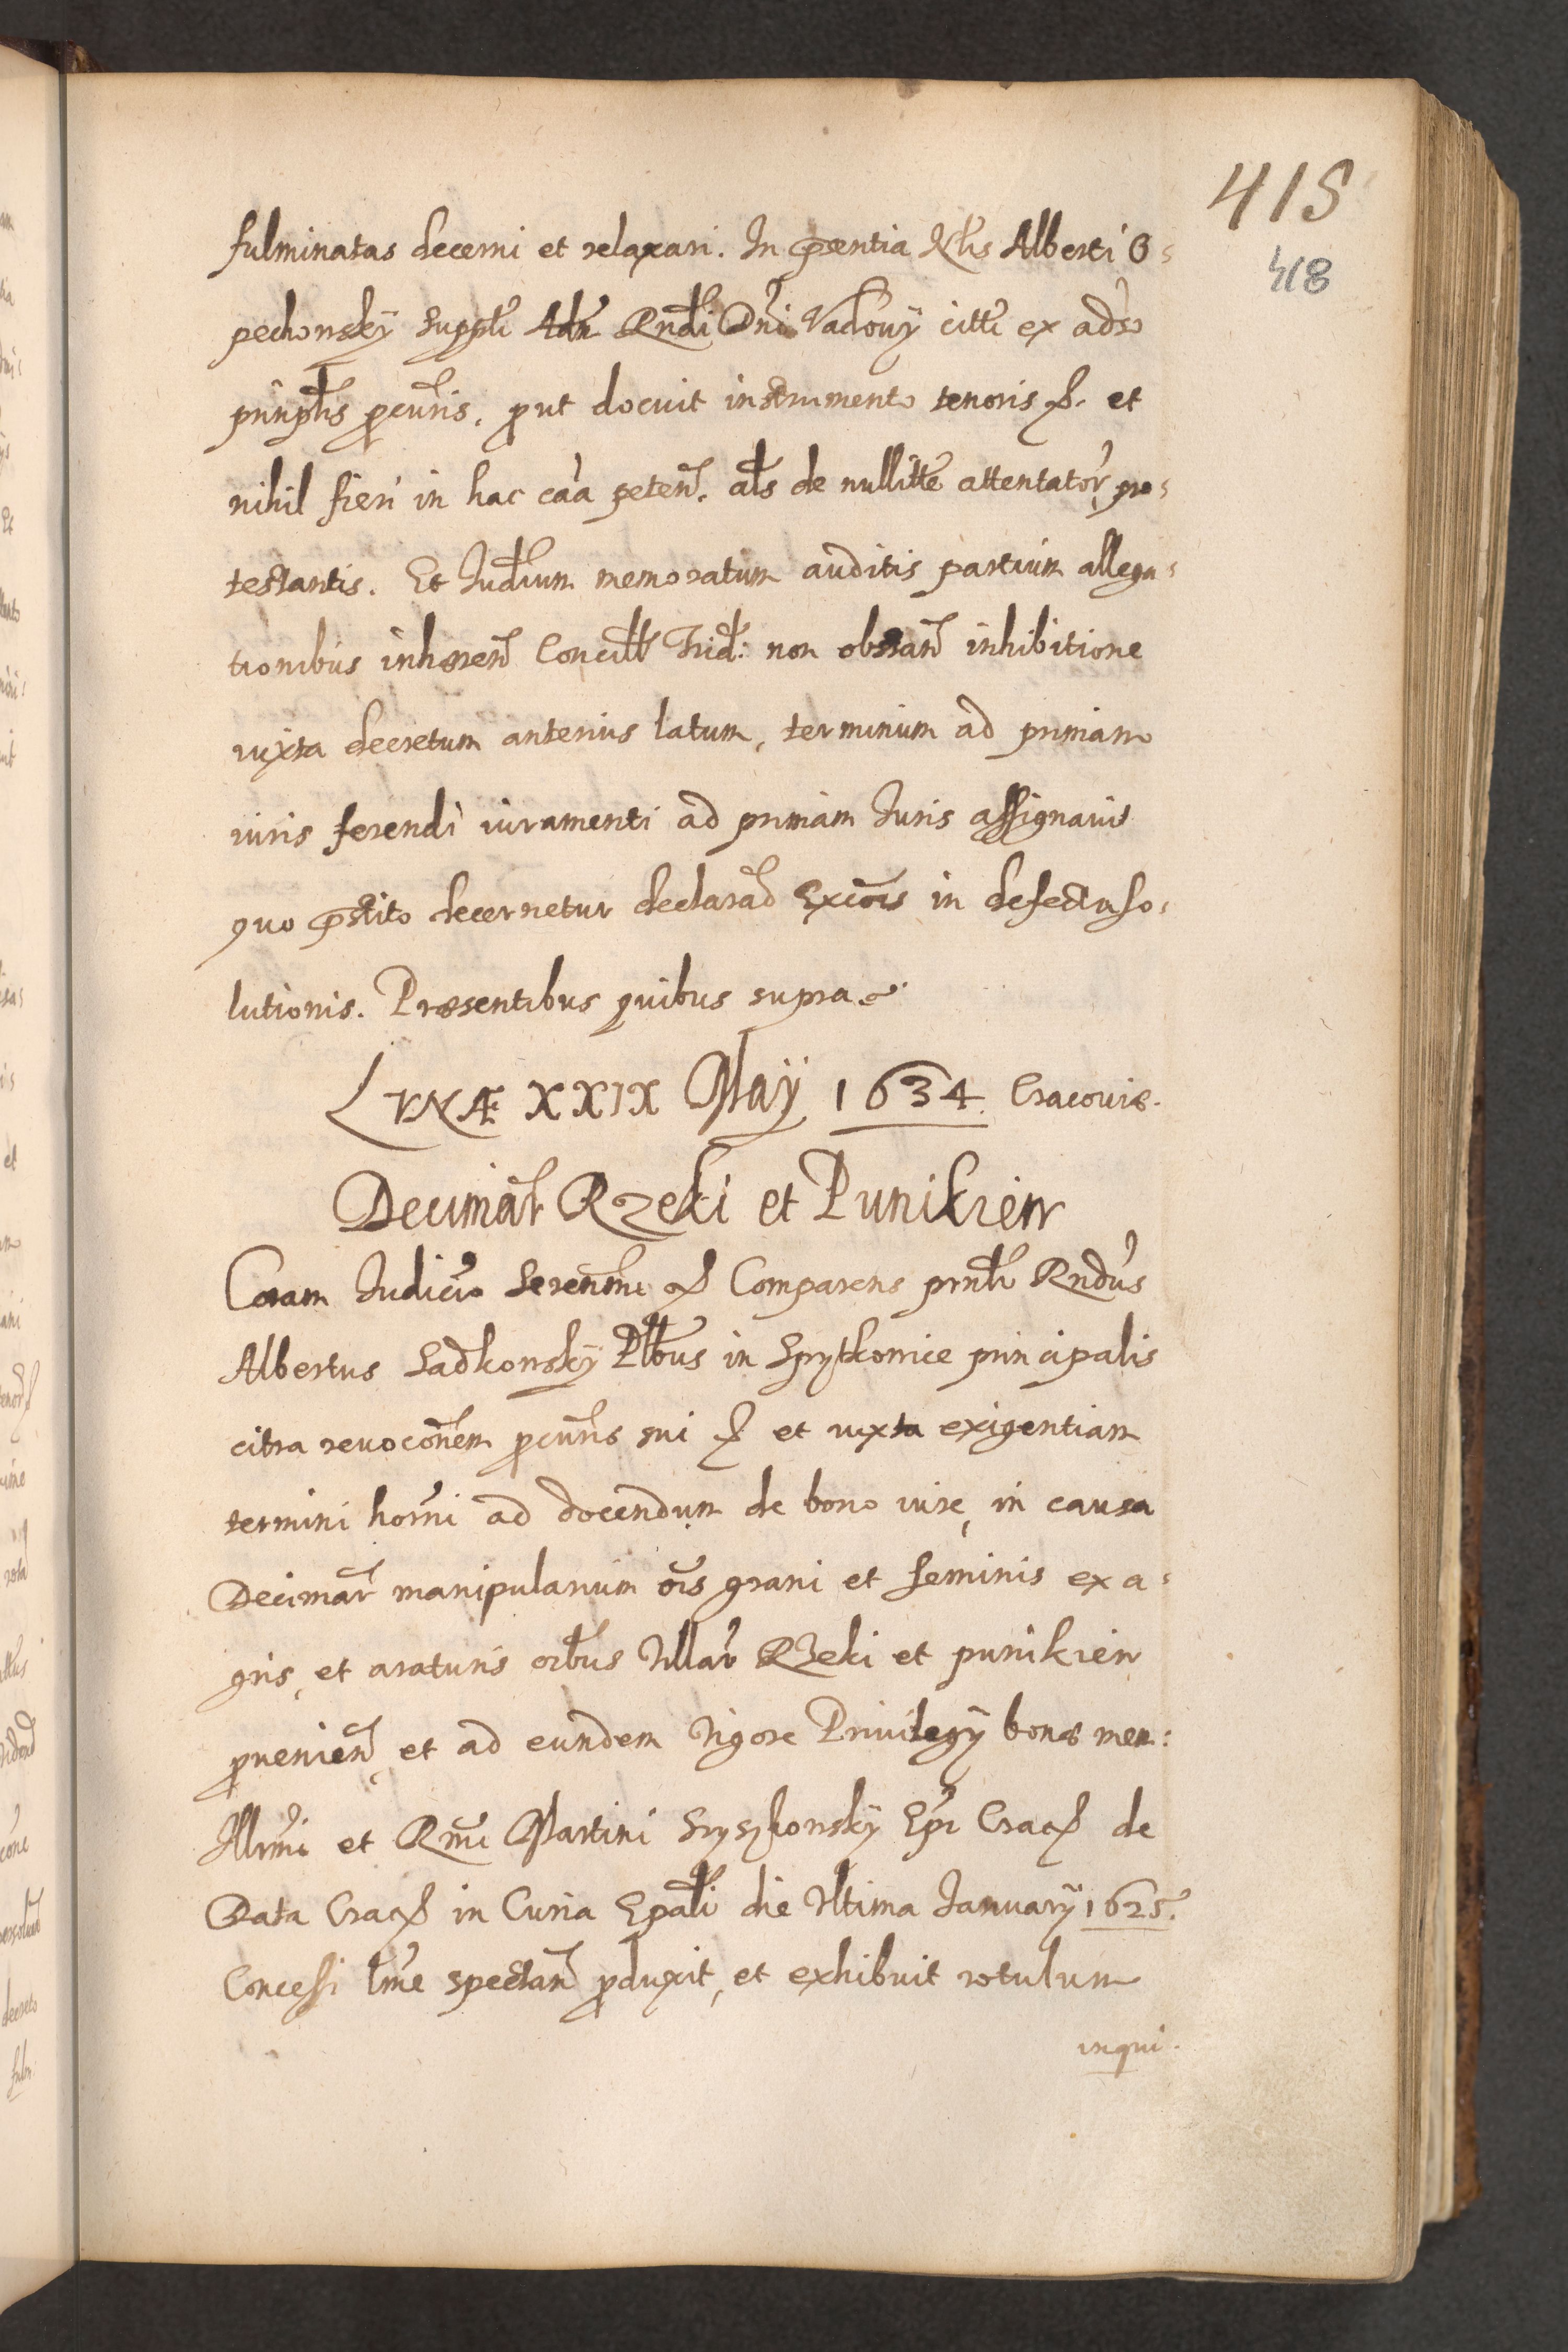 415
418
fulminatas decerni et relaxari. In pñtia Nlis Alberti O-
pechowsky Suppłi Adm̃ Rndi Dñi Vadovij citti ex adṽso
prinplis pcuris. put docuit instrumento tenoris &. et
nihil fieri in hac caã peteñ. als de nullitte attentator pro-
testantis. Et Iudium memoratum auditis partium allega-
tionibus inhæreñ Concill Trid: non obstañ inhibitione
iuxta decretum anterius latum, terminum ad primam
iuris ferendi iuramenti ad primam Iuris assignavit
quo pstito decernetur declarad Excõis in defectu so-
lutionis. Præsentibus quibus supra
LVNÆ XXIX Maÿ 1634. Cracoviæ.
Decimar Rzeki et Punikiew
Coram Iudicio Serenmi & Comparens prnlr Rndus
Albertus Sadkowskÿ Plbus in Spytkowice principalis
citra revocõnem pcuris sui & et iuxta exigentiam
termini horni ad docendum de bono iure, in causa
Decimar manipularium ois grani et seminis ex a-
gris, et araturis oibus Villar Rzeki et punikiew
pvenieñ, et ad eundem Vigore Privilegÿ bonæ mem:
Illrmi et Rmi Martini Szyszkowskÿ Epi Crac& de
Data Crac& in Curia Epali die Vltima Ianuarÿ 1625.
Concessi lme spectañ pduxit, et exhibuit rotulum
inqui.